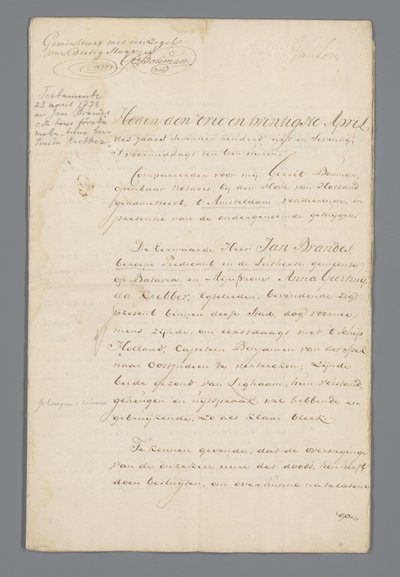 Geminuteert met een Zegel
van Dertig Stuyvers
G. Bouman
Testament
23 april 1778
av Jan Brandes
och hans
maka Anna Ger-
truida Krebber
Heden den drie en twintigste April
des jaars Seventien honderd agt en Seventig,
'svoormiddags ten tien uuren.
Compareerden voor mij Gerrit Bouman,
openbaar Notaris, bij den Hove van Holland
geadmitteert, t' Amsteldam resideerende, in
presentie van de ondergenoemde getuijgen.
De Eerwaarde Heer Jan Brandes
beroepe Predicant en de Luthersche gemeente
op Batavia, en Mejuffrouw Anna Geertruij
da Krebber, Egtelieden, bevindende zig
present binnen deese Stad, dog voornee
mens zijnde, om eerstdaags met 't Schip
Holland, Capitein Benjamin van der
naar Oostjndien te vertrecken; Zijnde
beide gezond van Lighaam, hun verstand,
geheugen en uijtspraak wel hebbende en
gebruijkende, zo als klaar bleek.
Te kennen gevende, dat de overweginge
van de onzekere uure des doods, hen heeft
doen besluijten, om over hunne natelatene